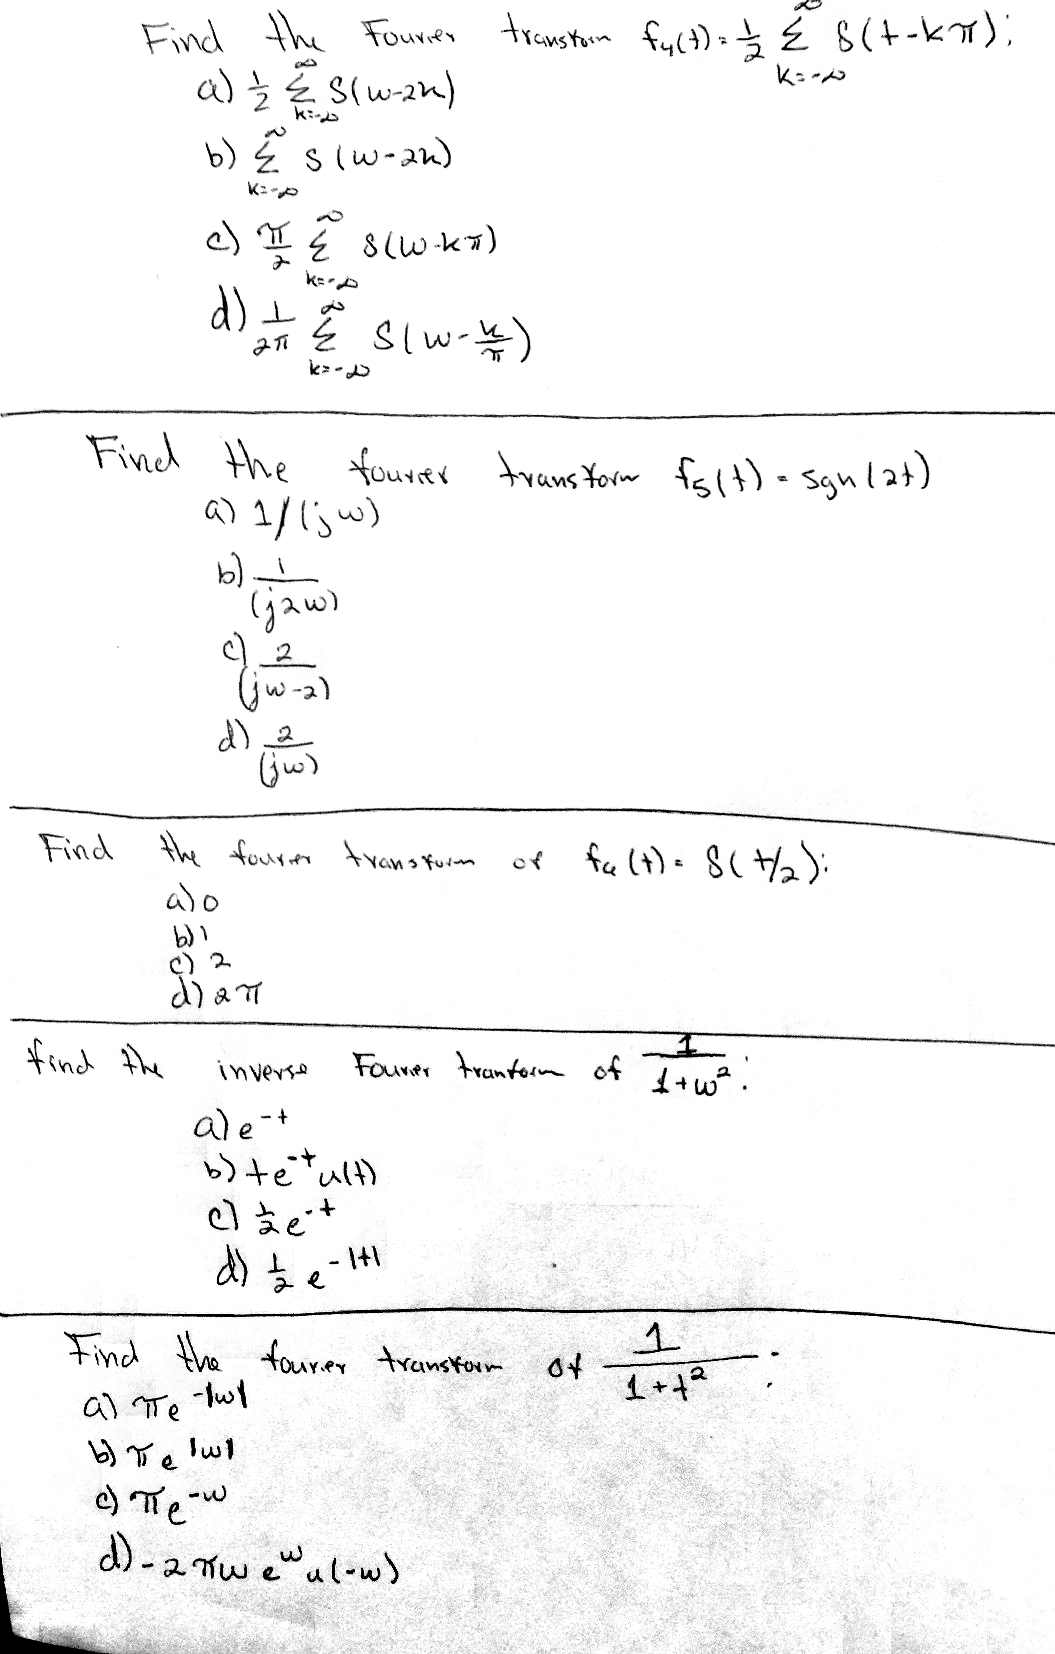 Find the Fourier transform f₄(t) = 1/2 Σ_{k=-∞}^{∞} δ(t-kπ);
a) 1/2 Σ_{k=-∞}^{∞} δ(w-2k)
b) Σ_{k=-∞}^{∞} δ(w-2k)
c) π/2 Σ_{k=-∞}^{∞} δ(w-kπ)
d) 1/2π Σ_{k=-∞}^{∞} δ(w-k/π)
Find the fourier transform f₅(t) = sgn(2t)
a) 1/(jw)
b) 1/(j2w)
c) 2/(jw-2)
d) 2/(jw)
Find the fourier transform of f₆(t) = δ(t/2):
a) 0
b) 1
c) 2
d) 2π
find the inverse Fourier tranform of 1/(1+w²):
a) e^{-t}
b) te^{-t}u(t)
c) 1/2 e^{-t}
d) 1/2 e^{-|t|}
Find the fourier transform of 1/(1+t²):
a) πe^{-|w|}
b) πe^{|w|}
c) πe^{-w}
d) -2πw e^{w} u(-w)